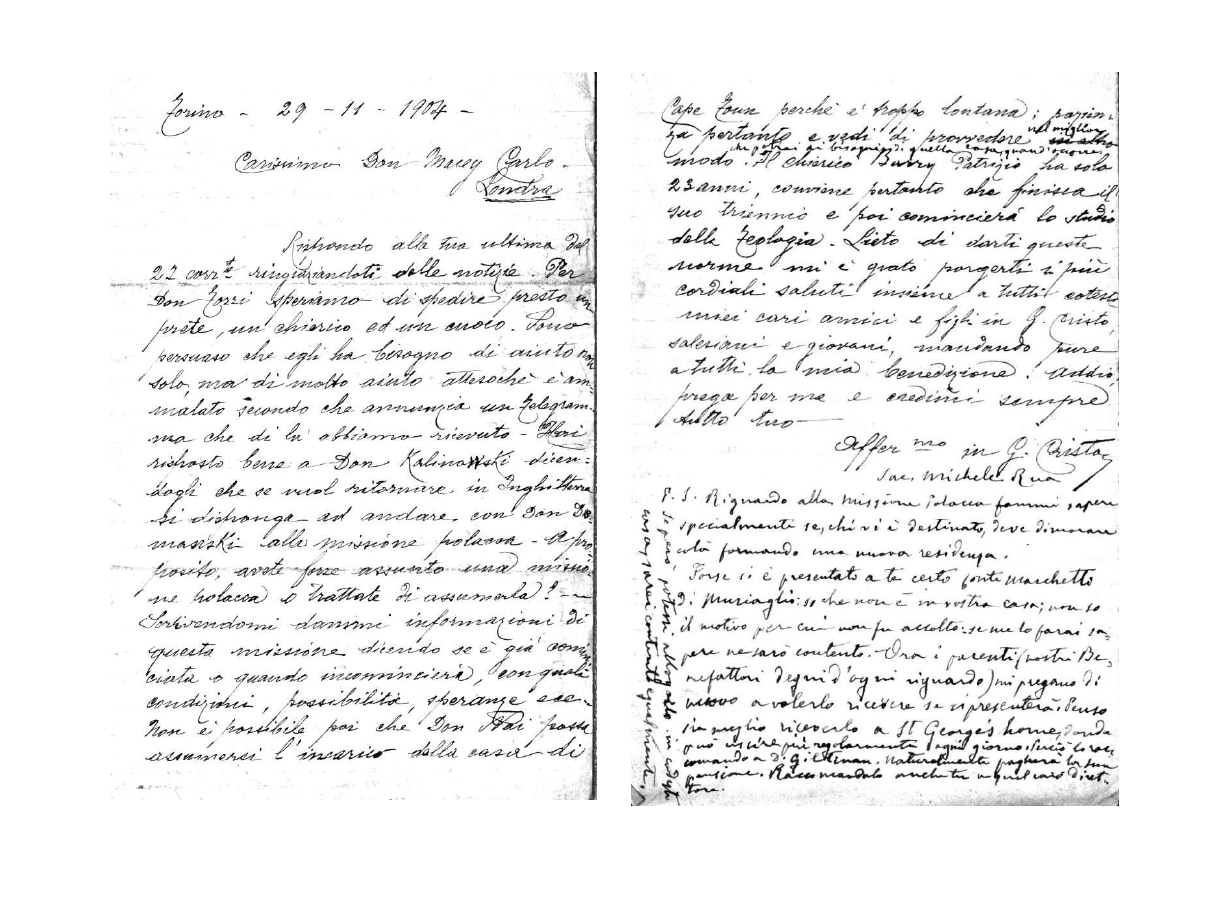 Torino - 29 - 11 - 1904 -
Carissimo Don Macey Carlo -
Londra
Rispondo alla tua ultima del
22 corr.te ringraziandoti delle notizie. Per
Don Tozzi speriamo di spedire presto un
prete, un chierico ed un cuoco. Sono
persuaso che egli ha bisogno di aiuto non
solo, ma di molto aiuto attesochè è am=
malato secondo che annunzia un telegram=
ma che di là abbiamo ricevuto - Hai
risposto bene a Don Kalinowski dicen=
dogli che se vuol ritornare in Inghilterra
si disponga ad andare con Don Do=
manski alla missione polacca - A pro=
posito, avete forse assunto una missio=
ne polacca o trattate di assumerla? -
Scrivendomi dammi informazioni di
questa missione dicendo se è già comin
ciata o quando incomincierà, con quali
condizioni, possibilità, speranze ecc -
Non è possibile poi che Don Rai possa
assumersi l'incarico della casa di
Cape Toun perchè è troppo lontana; pazien=
za pertanto e vedi di provvedere nel miglior
modo che potrai ai bisogni di quella casa, quando occorre. Il chierico Barry Patrizio ha solo
23 anni, conviene pertanto che finisca il
suo triennio e poi comincierà lo studio
della Teologia. Lieto di darti queste
norme mi è grato porgerti i più
cordiali saluti insieme a tutti cotesti
miei cari amici e figli in G. Cristo,
salesiani e giovani, mandando pure
a tutti la mia benedizione. Addio
prega per me e credimi sempre
tutto tuo
Affez mo in G. Cristo
Sac. Michele Rua
P. S. Riguardo alla missione Polacca fammi sapere
specialmente se, chi vi è destinato, deve dimorare
colà formando una nuova residenza.
Forse si è presentato a te certo Conti Marchetto
di Muriaglio: so che non è in vostra casa; non so
il motivo per cui non fu accolto: se me lo farai sa=
pere ne sarò contento. Ora i parenti (nostri Be=
nefattori degni d'ogni riguardo) mi pregano di
nuovo a volerlo ricevere se si presenterà. Penso
sia meglio riceverlo a St George's home, donde
può uscire più regolarmente ogni giorno. Perciò lo rac
comando a D. Giltinan. Naturalmente pagherà la sua
pensione. Raccomandalo anche tu a quel caro Diret=
tore.
Se però potessi allogarlo in codesta
casa, sarei contento egualmente.